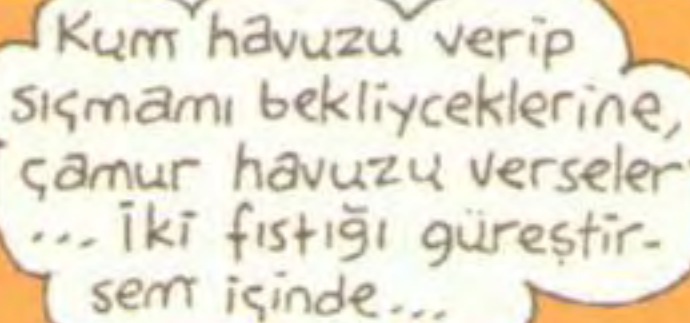 Kum havuzu verip
sıçmamı bekliyceklerine,
çamur havuzu verseler
... iki fıstığı güreştir-
sem içinde...